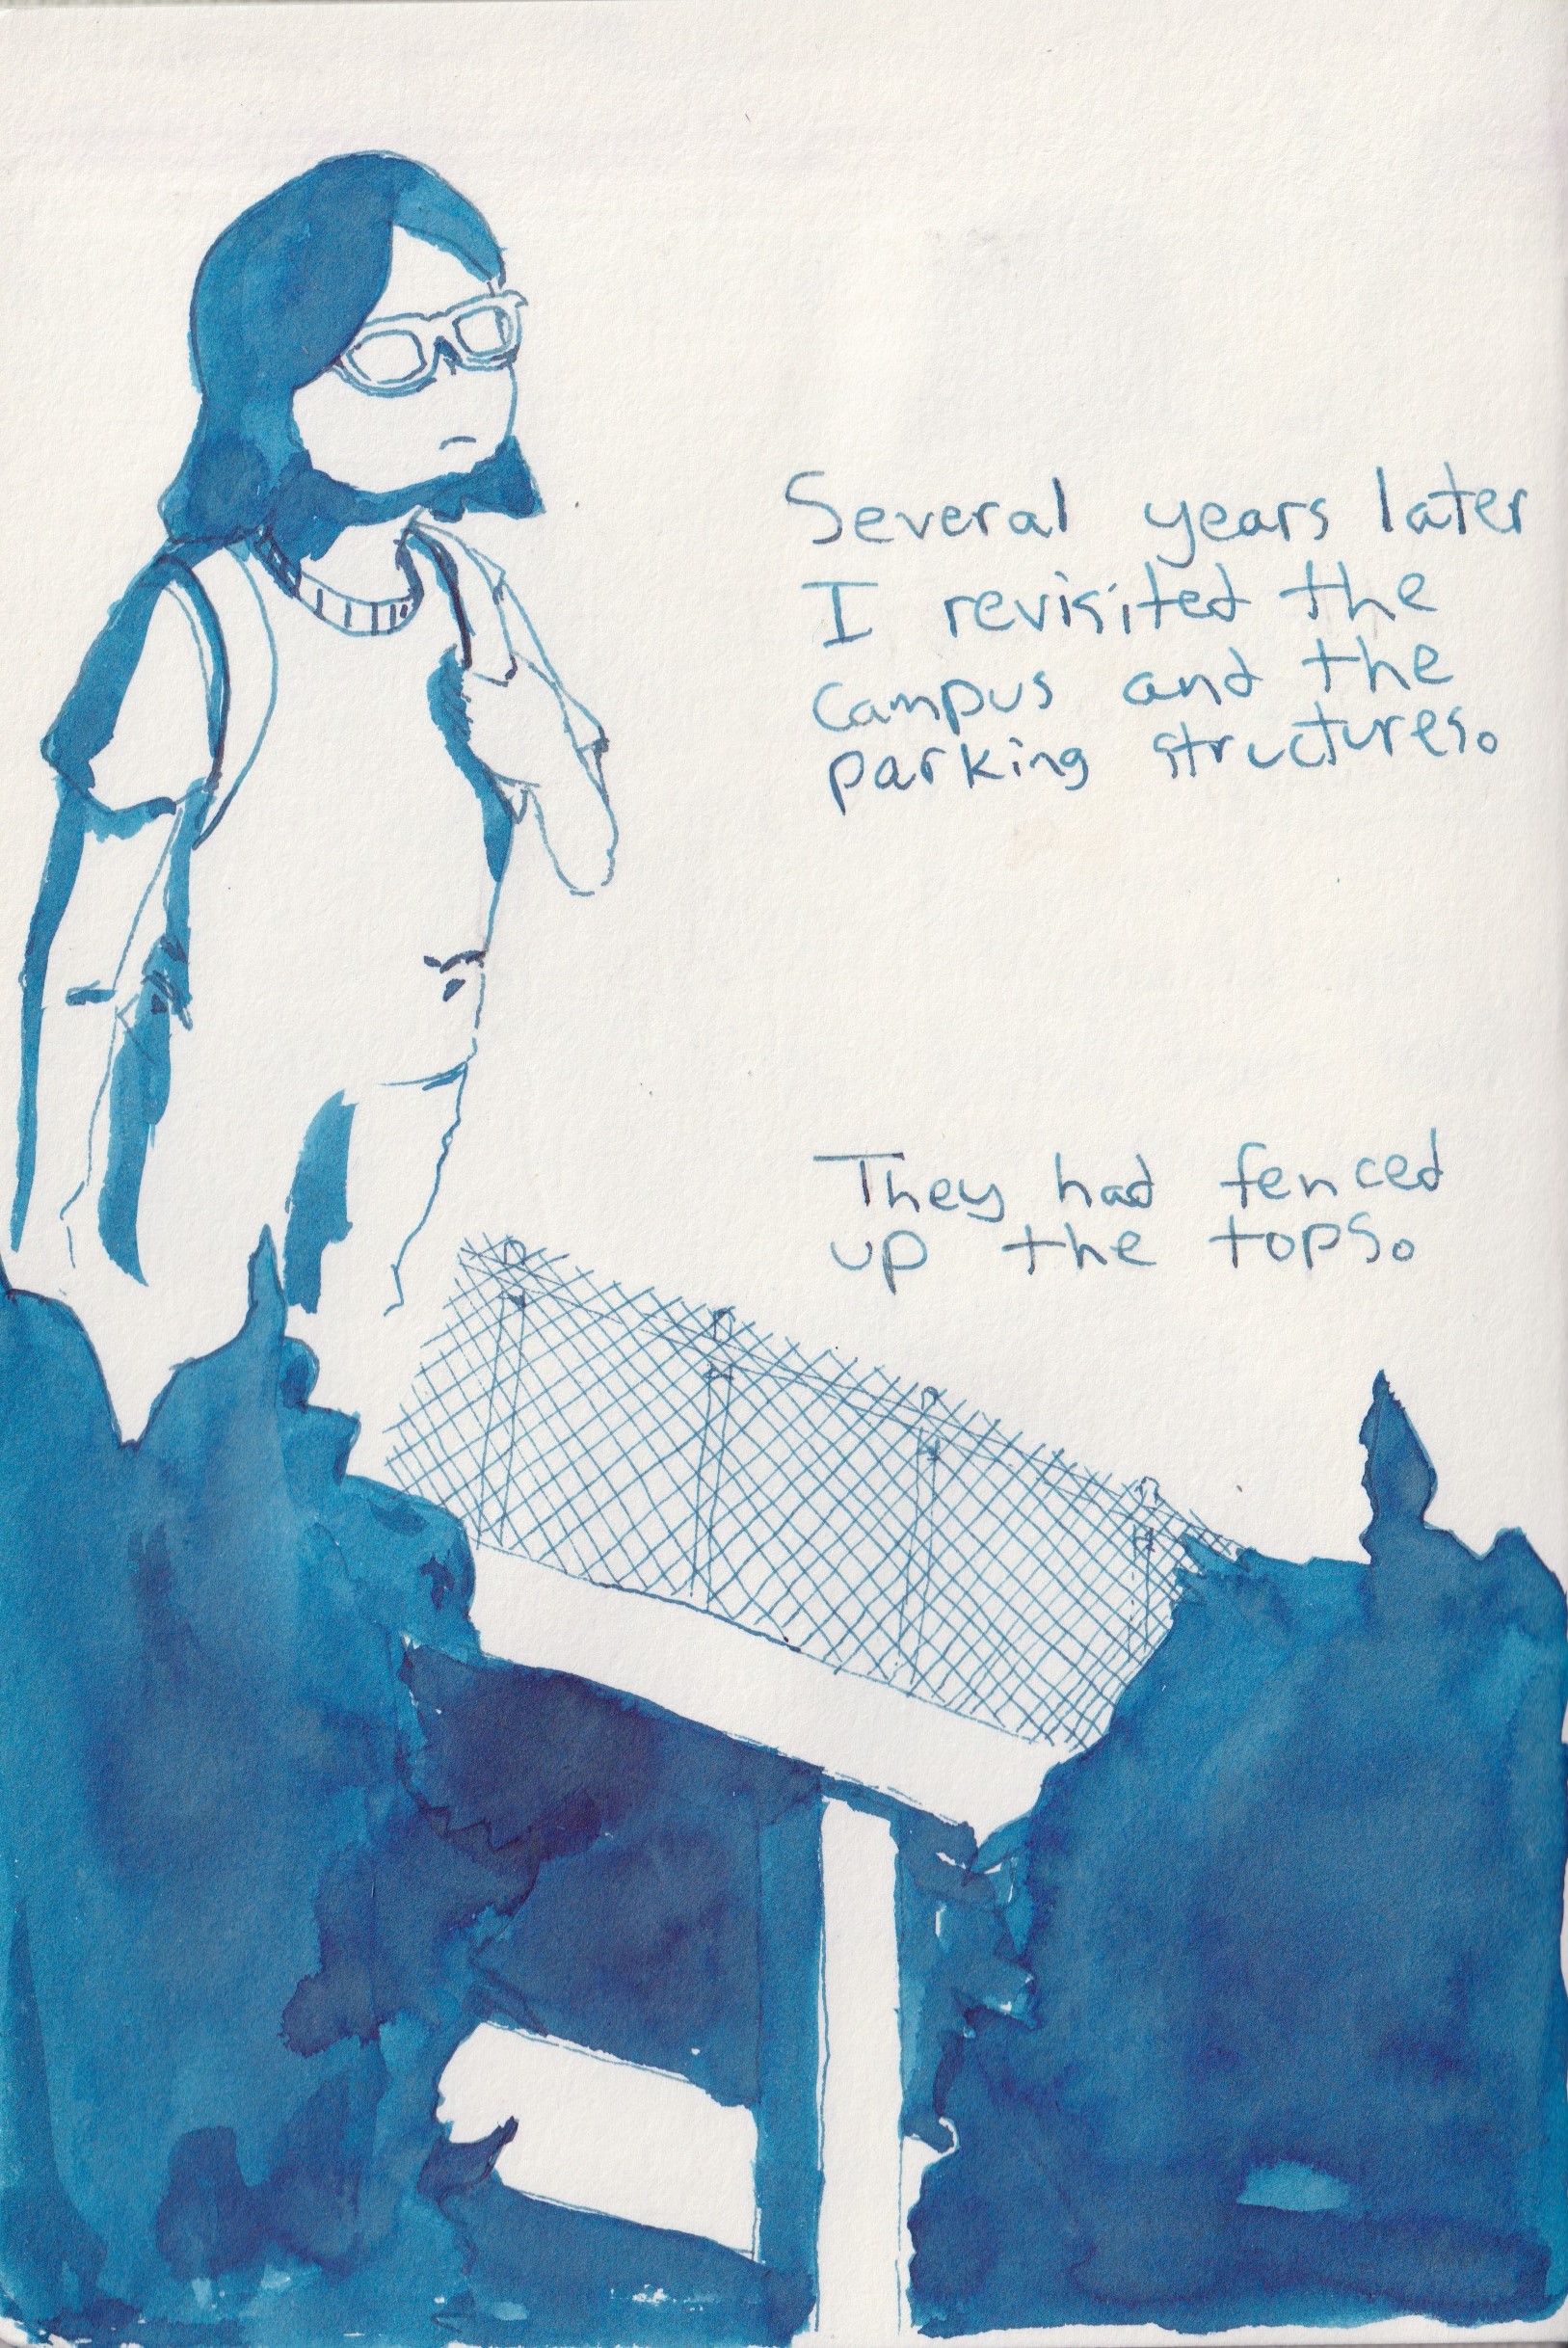 Several years later
I revisited the
campus and the
parking structures.
They had fenced
up the tops.